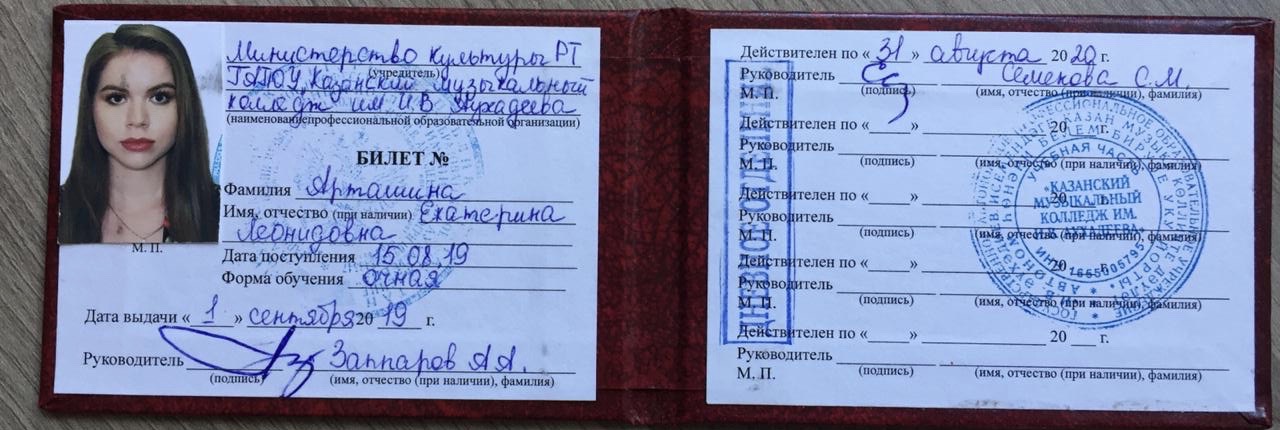 Министерство культуры РТ
(учредитель)
ГАПОУ „Казанский музыкальный
колледж им И.В Аухадеева
(наименование профессиональной образовательной организации)
БИЛЕТ №
Фамилия Арташина
Имя, отчество (при наличии) Екатерина
Леонидовна
М. П.
Дата поступления 15.08.19
Форма обучения очная
Дата выдачи « 1 » сентября 20 19 г.
Руководитель Заппаров А А.
(подпись) (имя, отчество (при наличии), фамилия)
Действителен по « 31 » августа 20 20 г.
Руководитель Семекова С.М.
М. П. (подпись) (имя, отчество (при наличии), фамилия)
Действителен по «____» ____ 20 __ г.
Руководитель
М. П. (подпись) (имя, отчество (при наличии), фамилия)
Действителен по «____» ____ 20 __ г.
Руководитель
М. П. (подпись) (имя, отчество (при наличии), фамилия)
Действителен по «____» ____ 20 __ г.
Руководитель
М. П. (подпись) (имя, отчество (при наличии), фамилия)
Действителен по «____» ____ 20 __ г.
Руководитель
М. П. (подпись) (имя, отчество (при наличии), фамилия)
УЧЕБНАЯ ЧАСТЬ
«КАЗАНСКИЙ
МУЗЫКАЛЬНЫЙ
КОЛЛЕДЖ ИМ.
И.В. АУХАДЕЕВА»